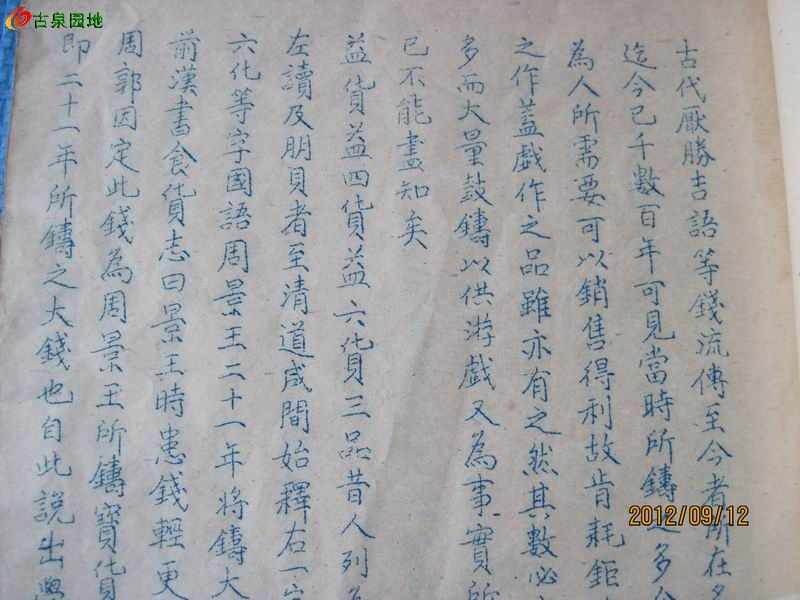 古泉园地
古代厭勝吉語等錢流傳至今者所在
迄今已千數百年可見當時所鑄之多
為人所需要可以銷售得利故肯耗鉅
之作蓋戲作之品雖亦有之然其數必
多而大量鼓鑄以供游戲又為事實所
已不能盡知矣
益貨益四貨益六貨三品昔人列為
左讀及朋貝者至清道咸間始釋右一字
六化等字國語周景王二十一年將鑄大
前漢書食貨志曰景王時患錢輕更
周郭因定此錢為周景王所鑄寶貨
即二十一年所鑄之大錢也自此說出
2012/09/12